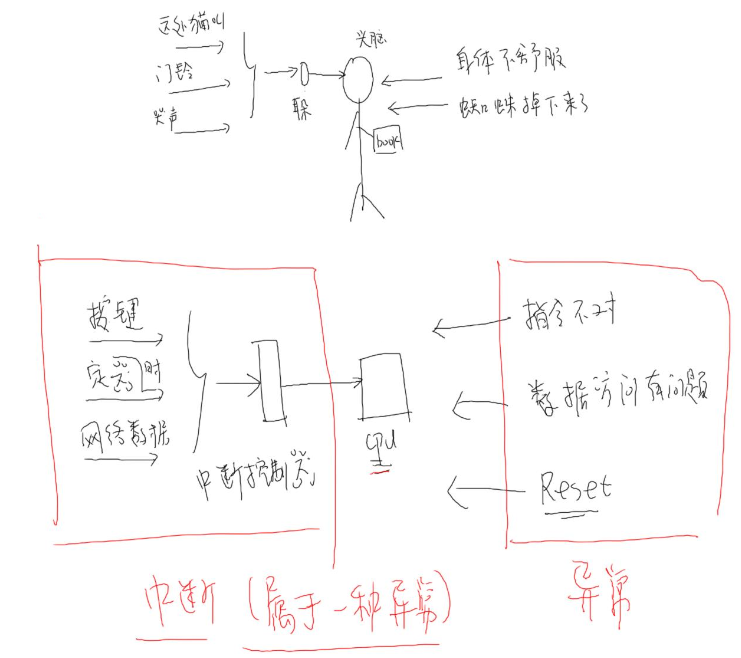 远处猫叫
门铃
哭声
头脑
身体不舒服
蜘蛛掉下来了
book
按键
定时器
网络数据
中断控制器
cpu
指令不对
数据访问有问题
Reset
中断 (属于一种异常)
异常